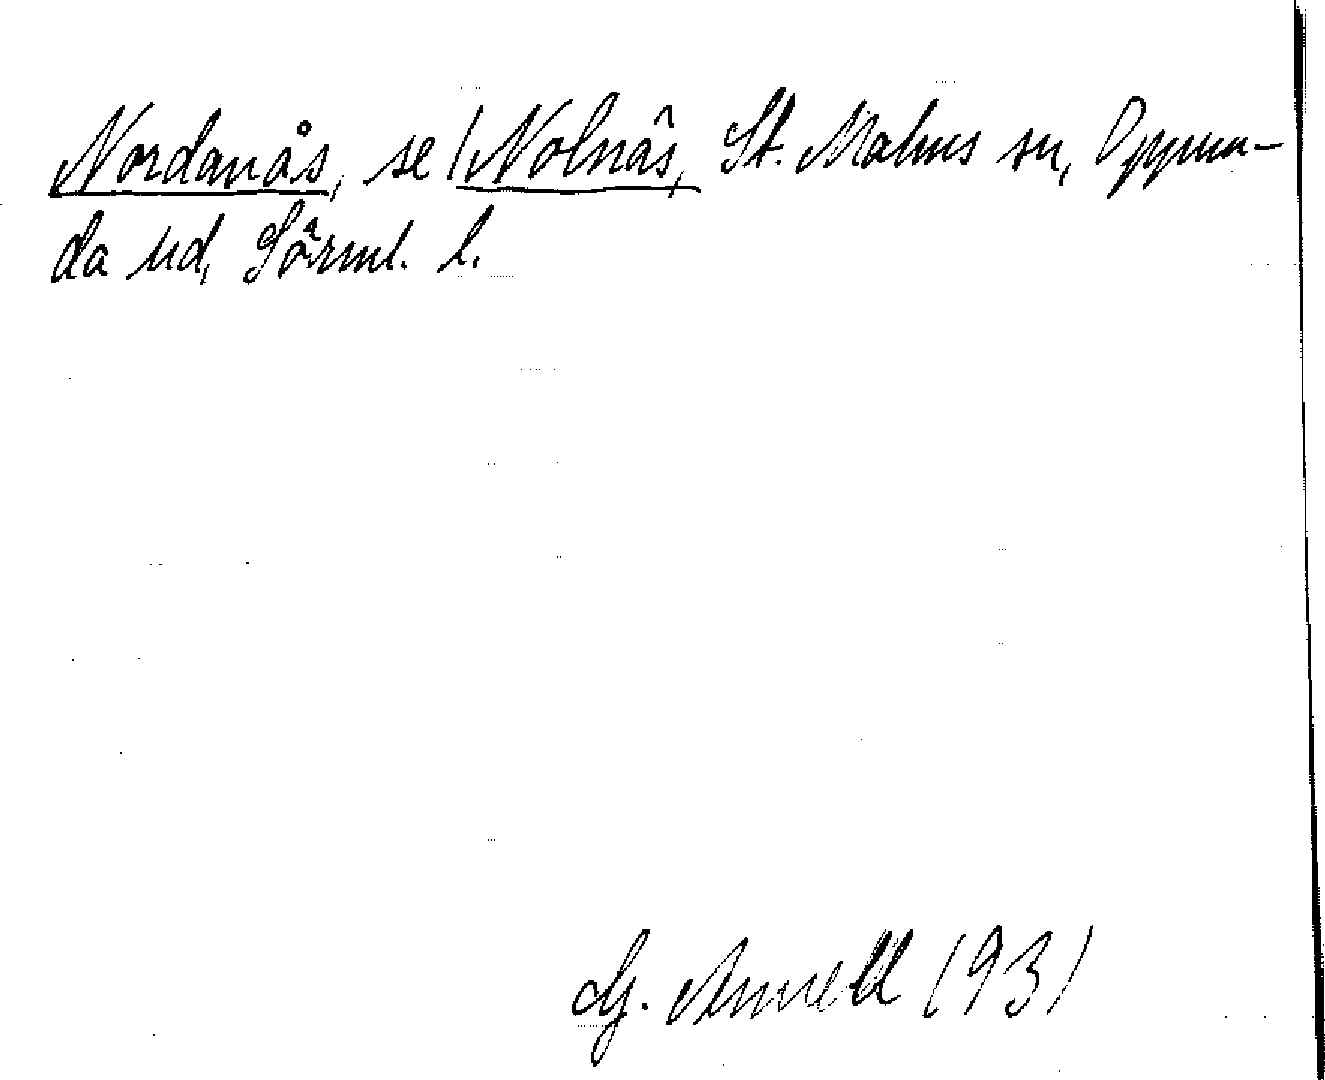 Nordanås, se /Nolnäs, St. Malms sn, Oppun-
da hd, Södml. l.
Hj. Annell 1931